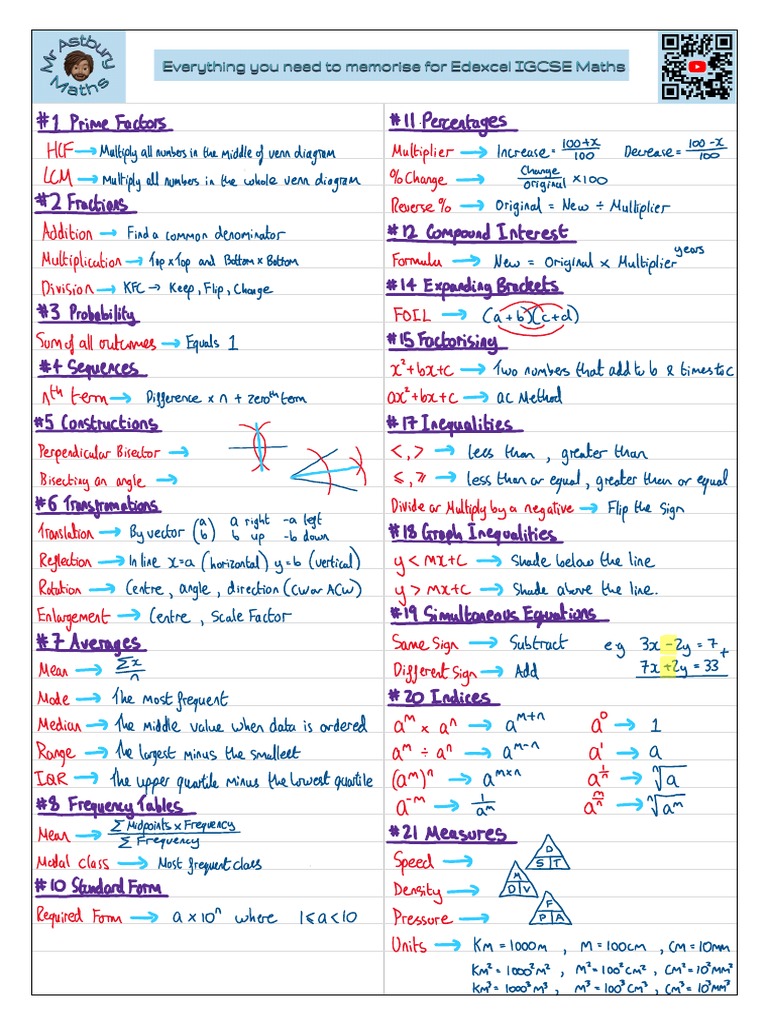 Mr Astbury Maths
Everything you need to memorise for Edexcel IGCSE Maths
#1 Prime Factors
HCF → Multiply all numbers in the middle of venn diagram
LCM → Multiply all numbers in the whole venn diagram
#2 Fractions
Addition → Find a common denominator
Multiplication → Top × Top and Bottom × Bottom
Division → KFC → Keep, Flip, Change
#3 Probability
Sum of all outcomes → Equals 1
#4 Sequences
nth term → Difference × n + zeroth term
#5 Constructions
Perpendicular Bisector →
Bisecting an angle →
#6 Transfromations
Translation → By vector (a b) a right -a left
b up -b down
Reflection → In line x=a (horizontal) y=b (vertical)
Rotation → Centre, angle, direction (CW or ACW)
Enlargement → Centre, Scale Factor
#7 Averages
Mean → Σx/n
Mode → The most frequent
Median → The middle value when data is ordered
Range → The largest minus the smallest
IQR → The upper quartile minus the lowest quartile
#8 Frequency Tables
Mean → Σ Midpoints × Frequency / Σ Frequency
Modal class → Most frequent class
#10 Standard Form
Required Form → a × 10ⁿ where 1 ⩽ a < 10
#11 Percentages
Multiplier → Increase = 100+x/100 Decrease = 100-x/100
% Change → Change/original × 100
Reverse % → Original = New ÷ Multiplier
#12 Compound Interest
Formula → New = Original × Multiplier^years
#14 Expanding Brackets
FOIL → (a+b)(c+d)
#15 Factorising
x²+bx+c → Two numbers that add to b & times to c
ax²+bx+c → ac Method
#17 Inequalities
<, > → less than, greater than
⩽, ⩾ → less than or equal, greater than or equal
Divide or Multiply by a negative → Flip the sign
#18 Graph Inequalities
y < mx+c → Shade below the line
y > mx+c → Shade above the line.
#19 Simultaneous Equations
Same Sign → Subtract e.g 3x - 2y = 7
Different Sign → Add 7x + 2y = 33 +
#20 Indices
aᵐ × aⁿ → aᵐ⁺ⁿ a⁰ → 1
aᵐ ÷ aⁿ → aᵐ⁻ⁿ a¹ → a
(aᵐ)ⁿ → a^m×n a^1/n → ⁿ√a
a⁻ᵐ → 1/aᵐ a^m/n → ⁿ√aᵐ
#21 Measures
Speed → D S T
Density → M D V
Pressure → F P A
Units → KM = 1000M, M = 100CM, CM = 10MM
KM² = 1000²M², M² = 100²CM², CM² = 10²MM²
KM³ = 1000³M³, M³ = 100³CM³, CM³ = 10³MM³